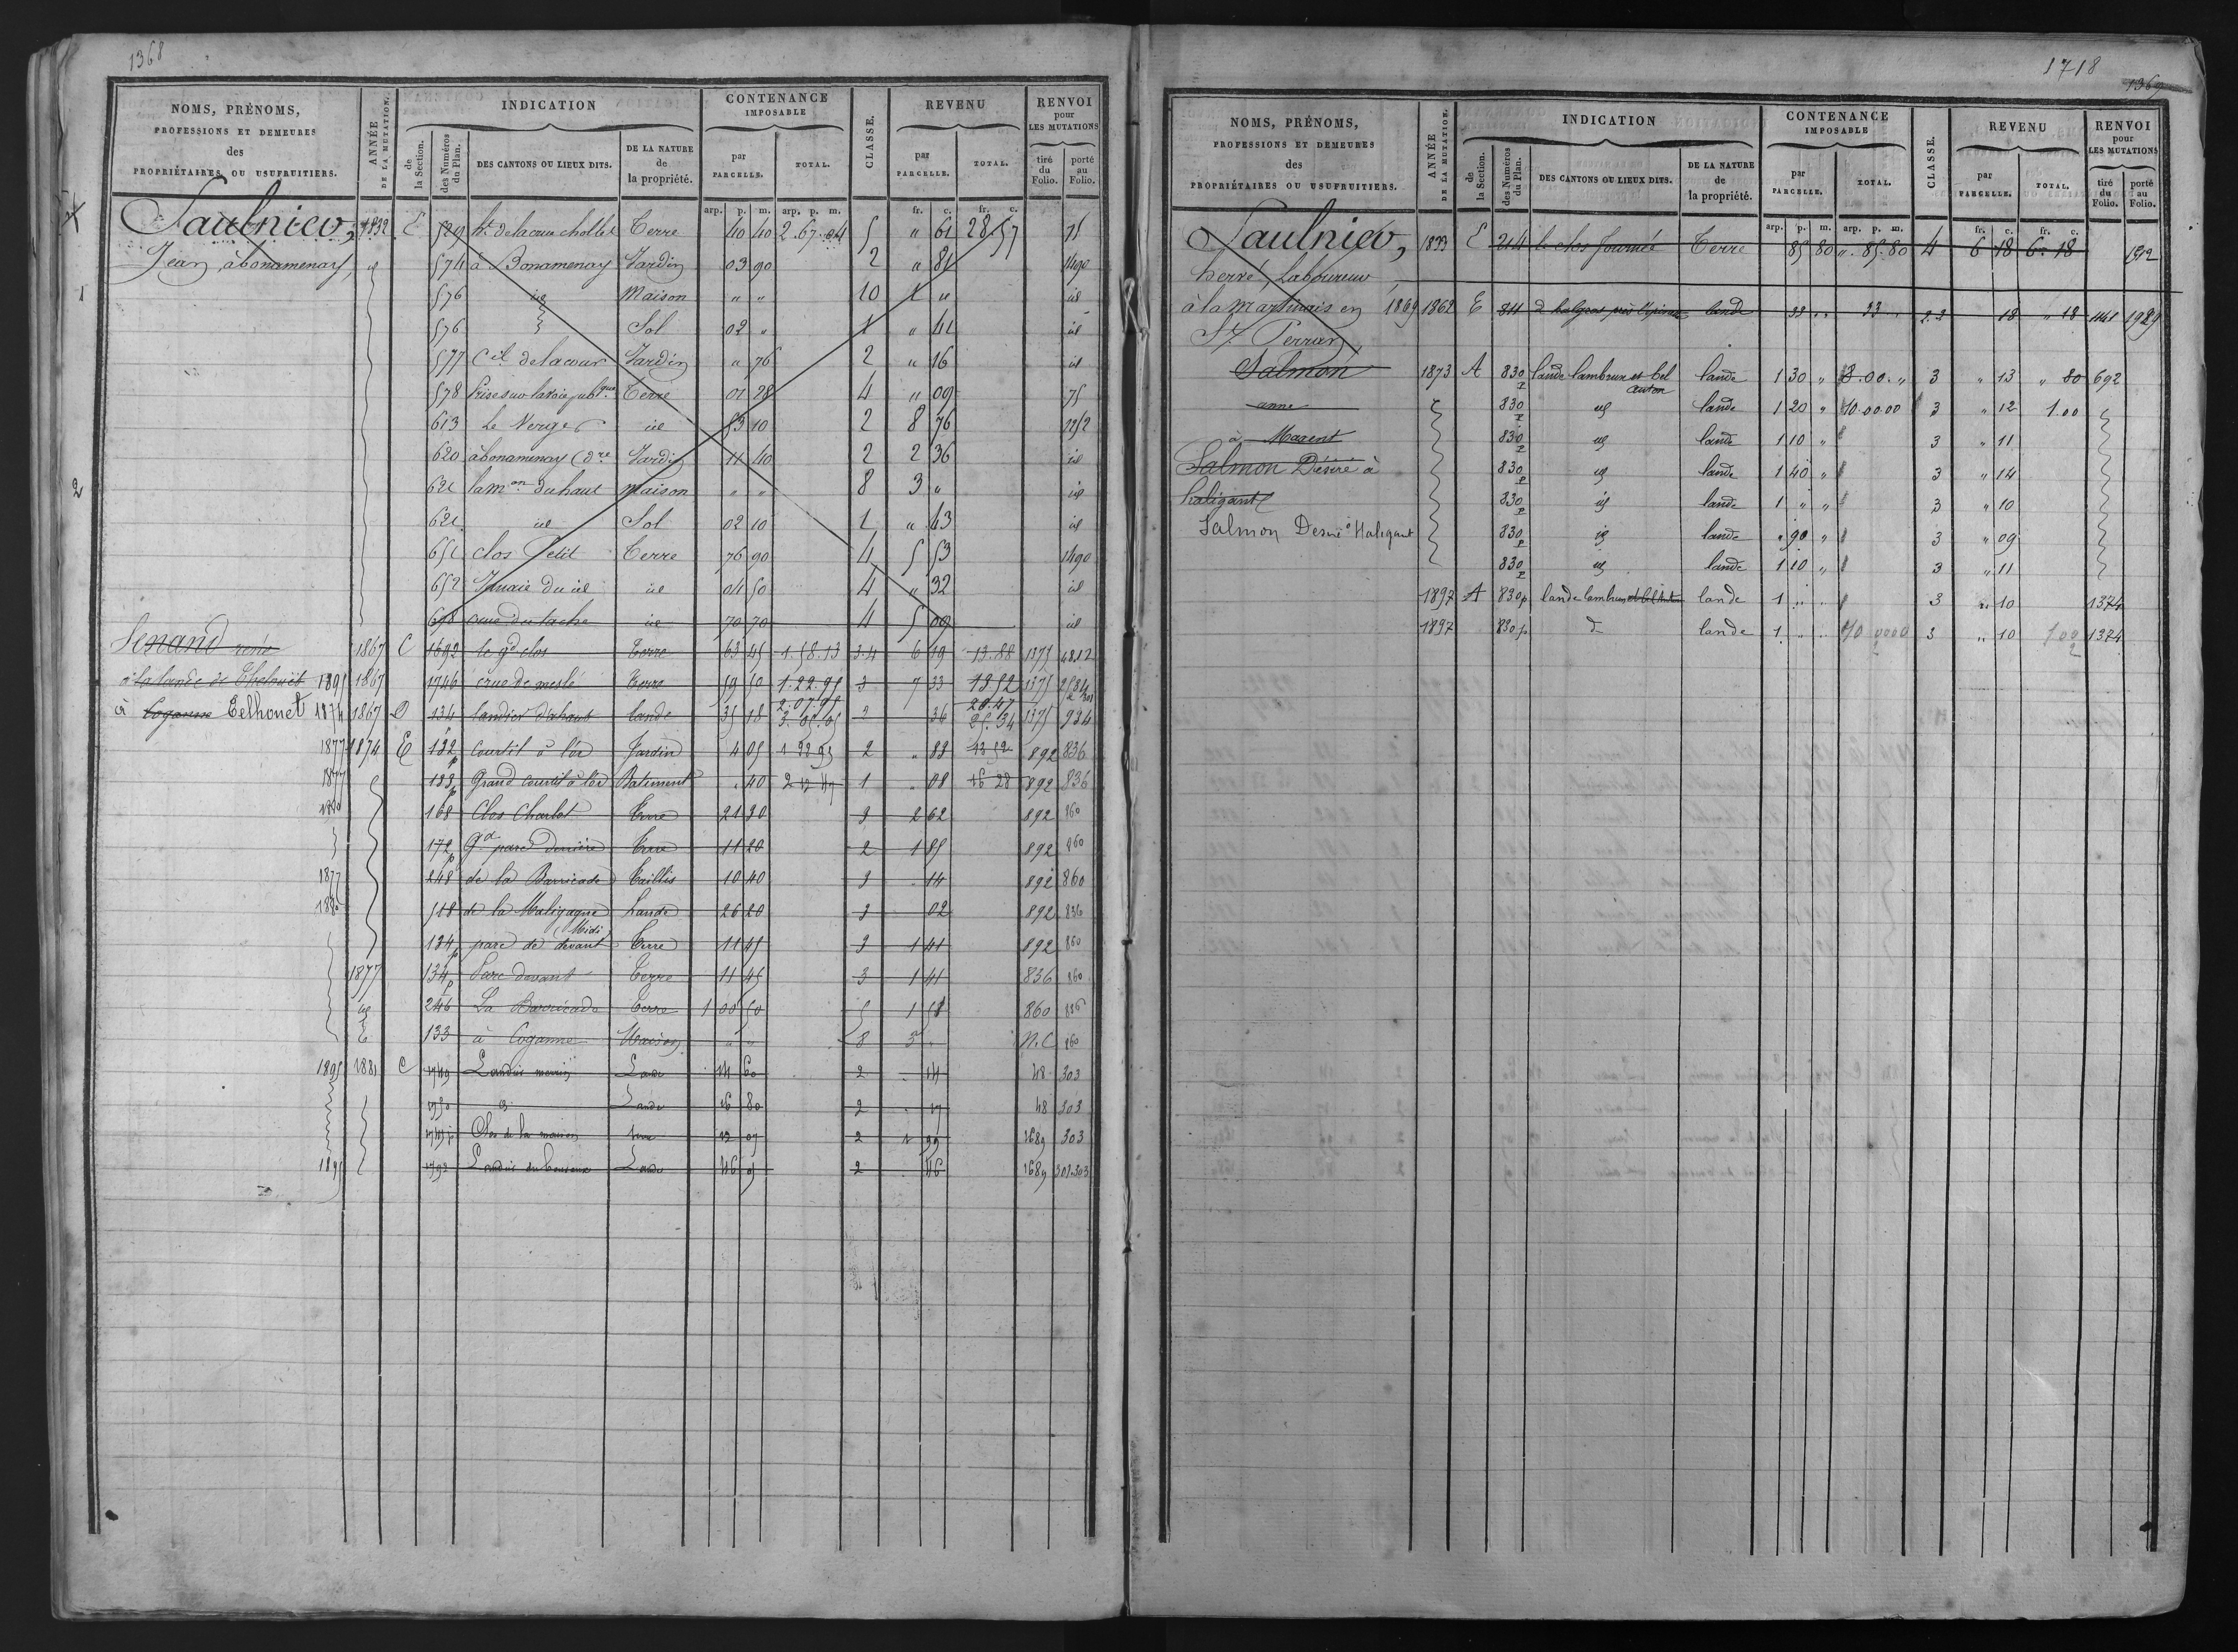 1368
NOMS, PRÉNOMS, PROFESSIONS ET DEMEURES des PROPRIÉTAIRES OU USUFRUITIERS.
ANNÉE DE LA MUTATION.
INDICATION
de la Section.
des Numéros du Plan.
DES CANTONS OU LIEUX DITS.
DE LA NATURE de la propriété.
CONTENANCE IMPOSABLE
par PARCELLE.
TOTAL.
CLASSE.
REVENU
par PARCELLE.
TOTAL.
RENVOI pour LES MUTATIONS
tiré du Folio.
porté au Folio.
arp. p. m. arp. p. m. fr. c. fr. c.
Saulnier, 1832 E 529 ht. de la cour chollet Terre 40 40 2.67.04 5 " 61 28 57 75
Jean, à bonamenay, id 574 à Bonamenay Jardin 03 90 2 " 81 1490
1 576 id Maison " " 10 1 " id
576 Sol 02 " 1 " 41 id
577 Ctil de la cour Jardin " 76 2 " 16 id
578 Prise sur la voie publique Terre 01 28 4 " 09 75
613 Le Verger id 53 10 2 8 76 1252
620 à bonamenay Jardin 11 40 2 2 36 id
2 621 la mon du haut Maison " " 8 3 " id
621 id Sol 02 10 1 " 43 id
651 clos Petit Terre 76 90 4 5 53 1490
652 id 04 50 4 " 32 id
698 id 70 70 4 5 09 id
Senand rené 1867 C 1692 le gd clos Terre 63 45 1.58.13 3.4 6 19 13.88 1375
à la lande de Thelouët 1895 1867 1746 crue de meslé Terre 59 50 1.22.95 3 7 33 13 52 1375
2.07.95 20.47
à Coganne Telhouet 1874 1867 D 134 landier d'ahaut lande 35 18 3.05.05 2 36 25.34 1375 934
1877 1874 E 132 p Courtil à l'or Jardin 4 05 1 22 95 2 " 83 13 52 892 836
1877 133 p Grand courtil à l'or Batiment " 40 1 " 08 16 28 892 836
1880 168 Clos Charlot Terre 21 30 3 2 62 892 860
172 p gd parc derrière Terre 11 20 2 1 85 892 860
1877 248 de la Barricade Taillis 10 40 3 " 14 892 860
1880 518 de la Maligagne Lande 26 20 3 02 892 836
Midi
134 p parc de devant Terre 11 45 3 1 41 892 860
1877 134 p Parc devant Terre 11 45 3 1 41 836 860
id 246 La Barricade Terre 1 00 50 5 1 58 860 836
E 133 à Coganne Maison " " 8 5 " N.C 860
1895 1881 C 1749 Lande 14 60 2 " 14 48 303
1750 d Lande 16 80 2 " 17 48 303
Clos de la maison 2 1 99 1689 303
1895 1792 Lande 46 05 2 46 1689 302.303
1718
1369
NOMS, PRÉNOMS, PROFESSIONS ET DEMEURES des PROPRIÉTAIRES OU USUFRUITIERS.
ANNÉE DE LA MUTATION.
INDICATION
de la Section.
des Numéros du Plan.
DES CANTONS OU LIEUX DITS.
DE LA NATURE de la propriété.
CONTENANCE IMPOSABLE
par PARCELLE.
TOTAL.
CLASSE.
REVENU
par PARCELLE.
TOTAL.
RENVOI pour LES MUTATIONS
tiré du Folio.
porté au Folio.
arp. p. m. arp. p. m. fr. c. fr. c.
Saulnier, 1833 E 214 le clos fournée Terre 85 80 ". 85.80 4 6 18 6. 18 1512
hervé, Laboureur
à la Martinais en 1869 1862 E 811 lande 33 " 33 " 2.3 18 " 18 1141 1929
St Perran
Salmon 1873 A 830 p lande lambrun et bel auton lande 1 30 " 8.00. " 3 " 13 " 80 692
anne 830 p id lande 1 20 " 10.00.00 3 " 12 1.00
à Maxent 830 p id lande 1 10 " 3 " 11
Salmon Désiré à 830 p id lande 1 40 " 3 " 14
haligant 830 p id lande 1 " " 3 " 10
Salmon Desiré à Haligant 830 p id lande " 90 " 3 " 09
830 p id lande 1 10 " 3 " 11
1897 A 830p lande lambrun et bel auton lande 1 " " 3 " 10 1374
1897 830p d lande 1 " " 10 0000 3 " 10 1 00 1374